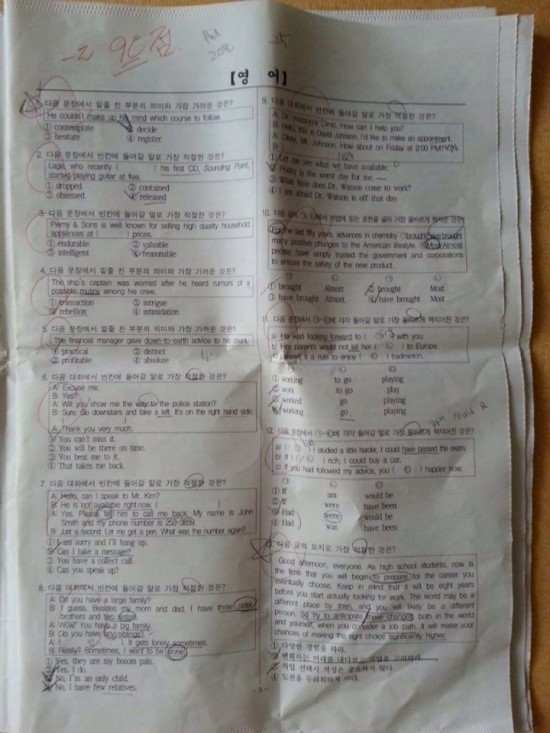 -2 90점
【영 어】
1. 다음 문장에서 밑줄 친 부분의 의미와 가장 가까운 것은?
He couldn't make up his mind which course to follow.
① contemplate ② decide
③ hesitate ④ register
2. 다음 문장에서 빈칸에 들어갈 말로 가장 적절한 것은?
Lage, who recently ( ) his first CD, Sounding Point,
started playing guitar at five.
① dropped ② contained
③ obsessed ④ released
3. 다음 문장에서 빈칸에 들어갈 말로 가장 적절한 것은?
Perny & Sons is well known for selling high quality household
appliances at ( ) prices.
① endurable ② valuable
③ intelligent ④ reasonable
4. 다음 문장에서 밑줄 친 부분의 의미와 가장 가까운 것은?
The ship's captain was worried after he heard rumors of a
possible mutiny among his crew.
① transaction ② intrigue
③ rebellion ④ intimidation
5. 다음 문장에서 밑줄 친 부분의 의미와 가장 가까운 것은?
The financial manager gave down-to-earth advice to his client.
① practical ② distinct
③ profitable ④ absolute
6. 다음 대화에서 빈칸에 들어갈 말로 가장 적절한 것은?
A: Excuse me.
B: Yes?
A: Will you show me the way to the police station?
B: Sure. Go downstairs and take a left. It's on the right hand side.
A: Thank you very much.
① You can't miss it.
② You will be there on time.
③ You beat me to it.
④ That takes me back.
7. 다음 대화에서 빈칸에 들어갈 말로 가장 적절한 것은?
A: Hello, can I speak to Mr. Kim?
B: He is not available right now. ( )
A: Yes. Please tell him to call me back. My name is John
Smith and my phone number is 253-3659.
B: Just a second. Let me get a pen. What was the number again?
① I am sorry and I'll hang up.
② Can I take a message?
③ You have a collect call.
④ Can you speak up?
8. 다음 대화에서 빈칸에 들어갈 말로 가장 적절한 것은?
A: Do you have a large family?
B: I guess. Besides my mom and dad, I have three older
brothers and two sisters.
A: WOW! You have a big family.
B: Do you have any siblings?
A: It gets lonely sometimes.
B: Really? Sometimes, I want to be alone.
① Yes, they are my bosom pals.
② Yes, I do.
③ No, I'm an only child.
④ No, I have few relatives.
9. 다음 대화에서 빈칸에 들어갈 말로 가장 적절한 것은?
A: Dr. Watson's Clinic. How can I help you?
B: Hello, this is David Johnson. I'd like to make an appointment.
A: Okay, Mr. Johnson. How about on Friday at 2:00 PM?
B:
① Let me see what we have available.
② Friday is the worst day for me.
③ What time does Dr. Watson come to work?
④ I am afraid Dr. Watson is off that day.
10.
For the last fifty years, advances in chemistry brought/have brought
many positive changes to the American lifestyle. Most/Almost
people have simply trusted the government and corporations
to ensure the safety of the new product.
① brought Almost ② brought Most
③ have brought Almost ④ have brought Most
11.
He was looking forward to ( ) with you.
Her parents would not let her ( ) to Europe.
I made it a rule to enjoy ( ) badminton.
① working to go playing
② work to go play
③ worked go playing
④ working go playing
12.
I ( ) I studied a little harder, I could have passed the exam.
If I ( ) rich, I could buy a car.
If you had followed my advice, you ( ) happier now.
① If am would be
② If were have been
③ Had were would be
④ Had was have been
13. 다음 글의 요지로 가장 적절한 것은?
Good afternoon, everyone. As high school students, now is
the time that you will begin to prepare for the career you
eventually choose. Keep in mind that it will be eight years
before you start actually looking for work. The world may be a
different place by then, and you will likely be a different
person. So try to anticipate these changes, both in the world
and yourself, when you consider a job path. It will make your
chances of making the right choice significantly higher.
① 다양한 경험을 하라.
② 변화하는 미래를 내다보고 직업을 고려하라.
③ 직업 선택에서 적성은 중요하지 않다.
④ 도전을 두려워하지 마라.